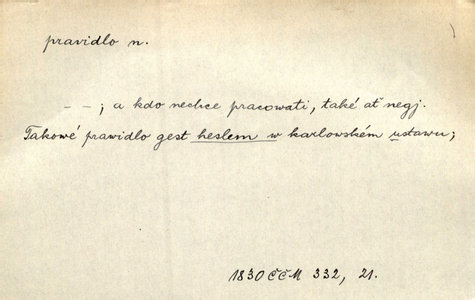 pravidlo n.
– – ; a kdo nechce pracowati, také ať negj.
Takowé prawidlo gest heslem w karlowském ustawu;
1830 ČČM 332, 21.